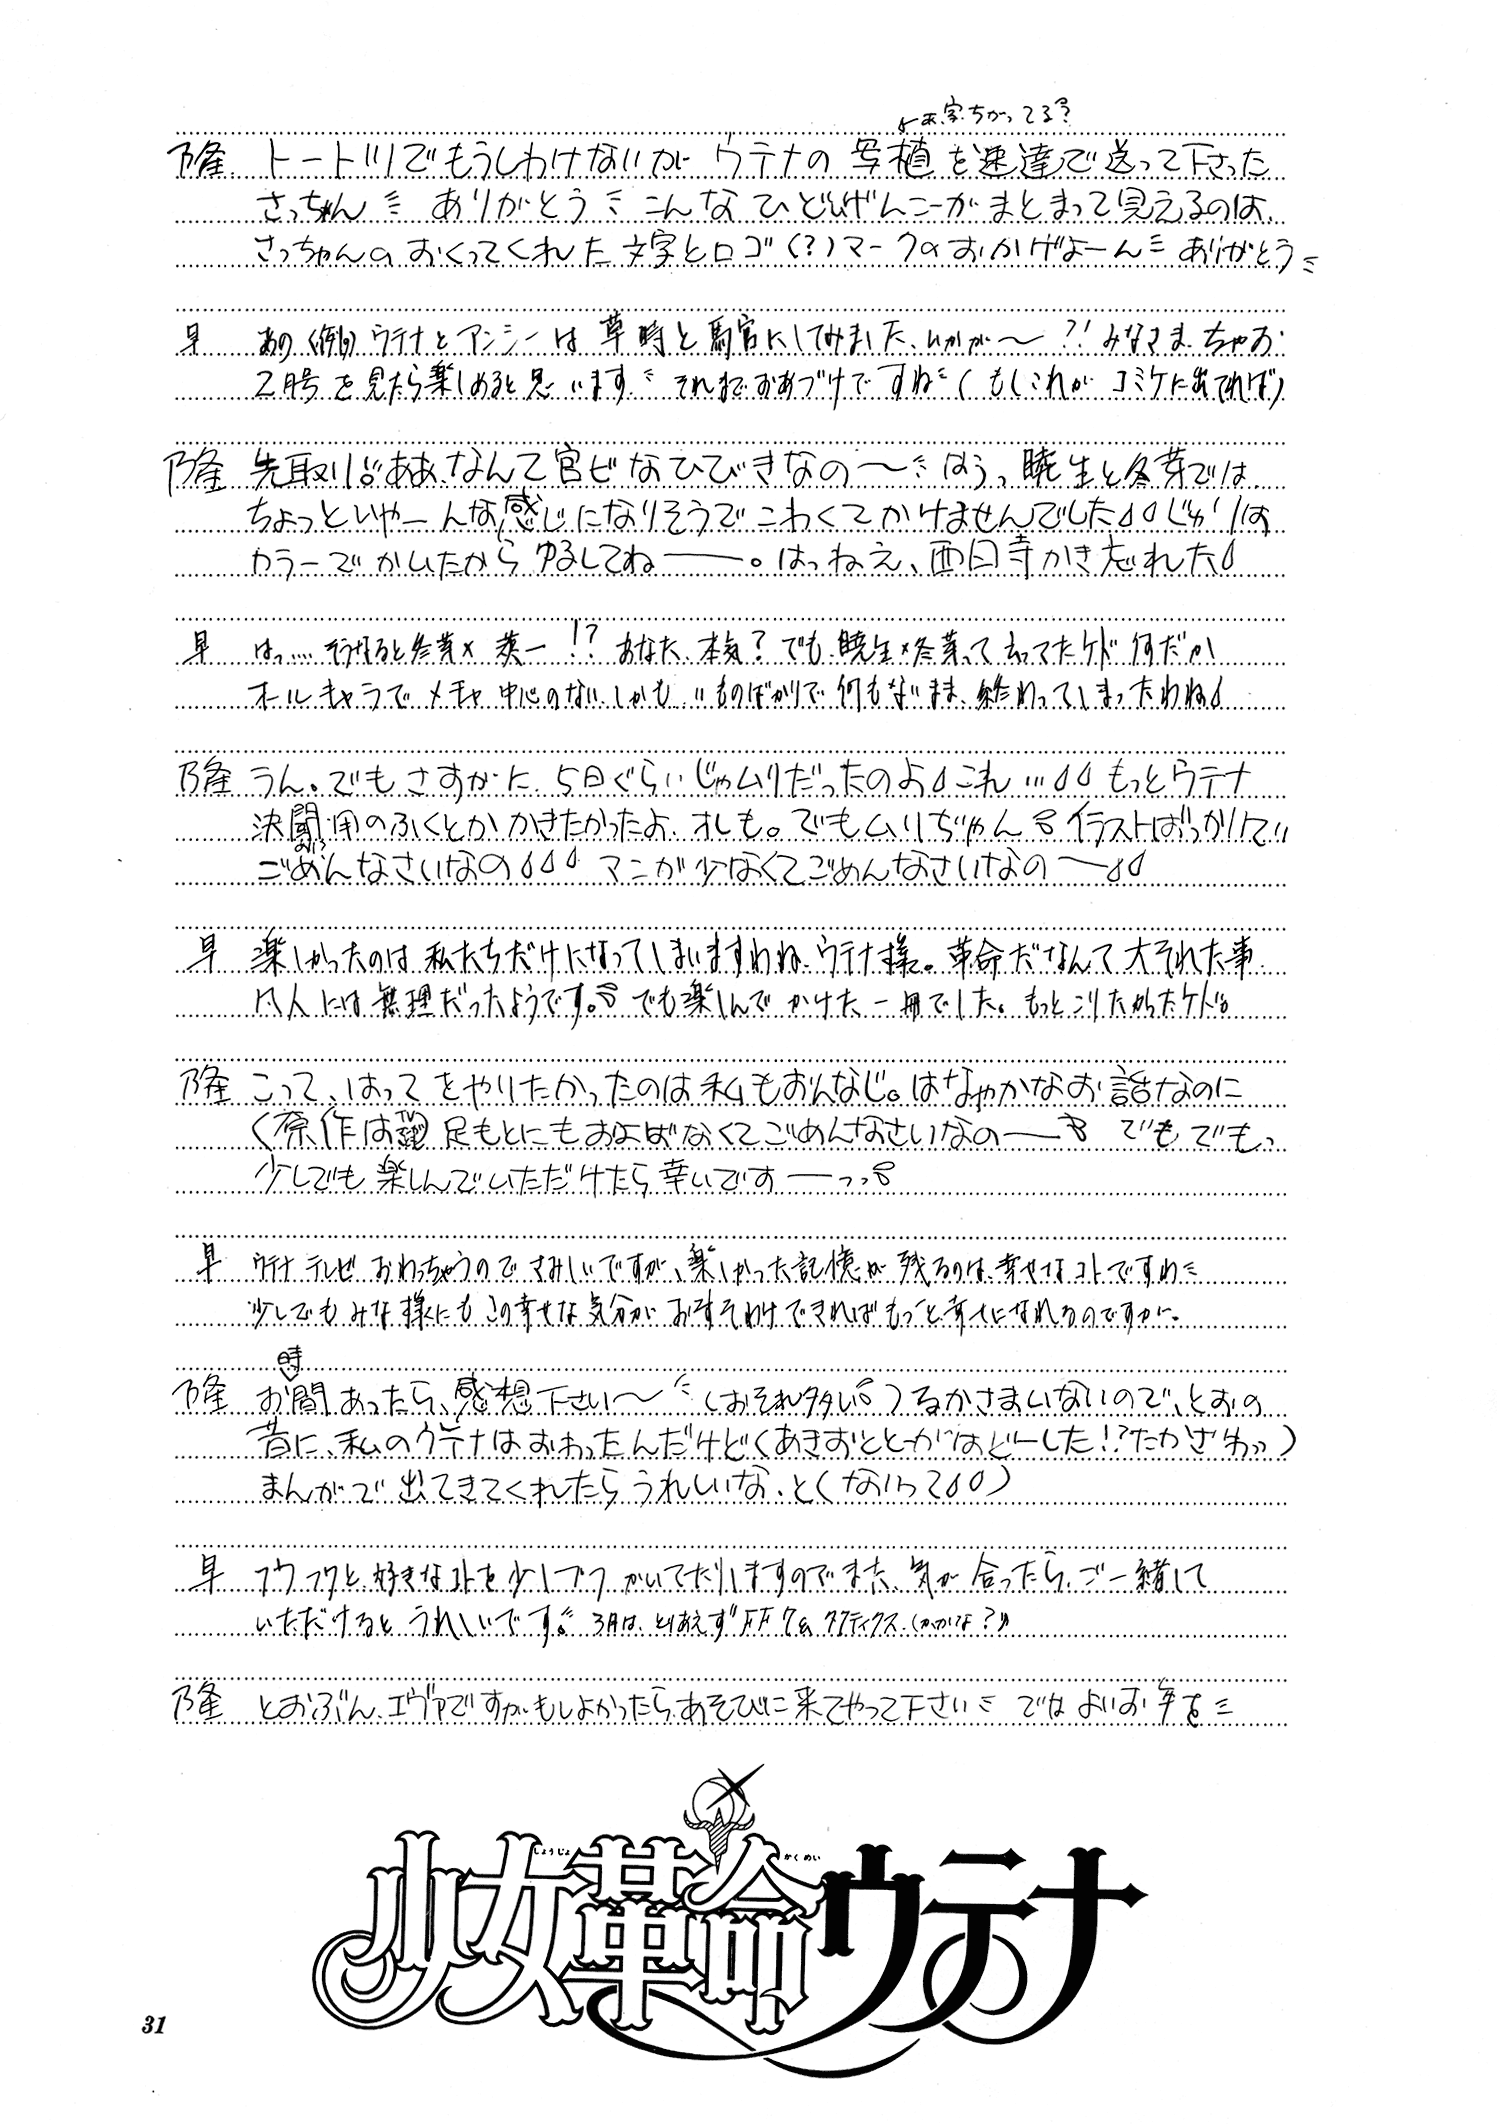 字ちがってる?
乃隆 トートツでもうしわけないが ウテナの写植を速達で送って下さった
さっちゃん ありがとう こんなひどいげんこーがまとまって見えるのは、
さっちゃんのおくってくれた文字とロゴ(?)マークのおかげよーん ありがとう
早 あの(例の)ウテナとアンシーは 草時と馬宮にしてみました、いかが〜?! みなさま ちゃお
2月号を見たら楽しめると思います それまでおあづけですね(もしこれが コミケに出てれば)
乃隆 先取りよ。ああ、なんて官ビなひびきなの〜 はうっ 暁生と冬芽では、
ちょっといやーんな感じになりそうでこわくてかけませんでした じゅりは
カラーでかいたから ゆるしてねー。はっねえ、西園寺かき忘れた
早 はっ…… そうなると冬芽× 莢一!? あなた、本気?でも、暁生×冬芽って言ってたケド 何だか
オールキャラで メチャ 中心のない、しかも いものばかりで 何もないまま、終わってしまったわね
乃隆 うん。でもさすがに、5日ぐらいじゃムリだったのよ これ… もっとウテナ
決闘用のふくとか かきたかったよ、オレも。でもムリぢゃん イラストばっかりで
ごめんなさいなの マンガ少なくてごめんなさいなのー
早 楽しかったのは 私たちだけになってしまいますわね、ウテナ様。革命だなんて 大それた事
凡人には無理だったようです。 でも楽しんで かけた 一冊でした。もっとこりたかったケド。
乃隆 こって、はってをやりたかったのは私もおんなじ。はなやかなお話なのに
(原作はTV) 足もとにもおよばなくてごめんなさいなのー でもでもっ
少しでも 楽しんでいただけたら 幸いですーっっ
早 ウテナ テレビ おわっちゃうので さみしいですが、楽しかった記憶が 残るのは、幸せなコトですわ
少しでもみな様にもこの幸せな気分が おすそわけできればもっと幸せになれるのですが…
時
乃隆 お間あったら、感想下さい〜 (おそれ多い)るかさまいないので、とおの
昔に、私のウテナはおわったんだけど(あきおととーがはどーした!?たかざわっ)
まんがで 出てきてくれたら うれしいな、と(ないって)
早 フウフウと 好きなコトを 少しづつ かいてたりしますのでまた、気が 合ったら、ご一緒して
いただけると うれしいです。 3月は、とりあえず“FF7& タクティクス、(かな?)”
乃隆 とおぶん、エヴァですが、もしよかったら、あそびに来てやって下さい では よいお年を
少女革命ウテナ
しょうじょ かくめい
31